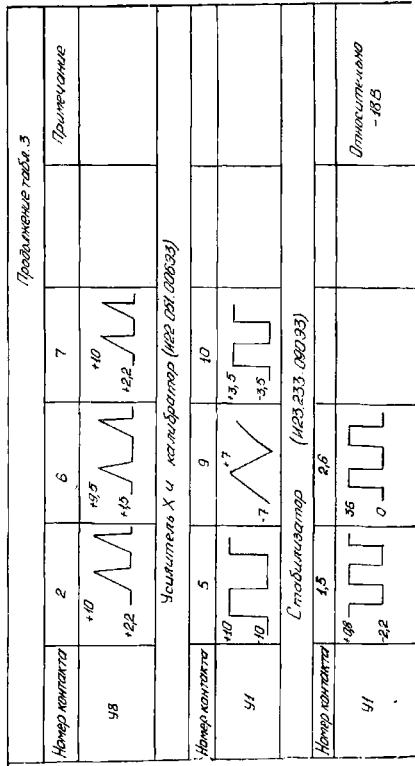 Продолжение табл. 3
Номер контакта 2 6 7 Примечание
У8 +10 +2,2 +9,5 +1,5 +10 +2,2
Усилитель X и калибратор (И22.051.00693)
Номер контакта 5 9 10
У1 +10 -10 +7 -7 +3,5 -3,5
Стабилизатор (И23.233.09093)
Номер контакта 1,5 2,6
У1 +0,8 -2,2 36 0 Относительно
-18В